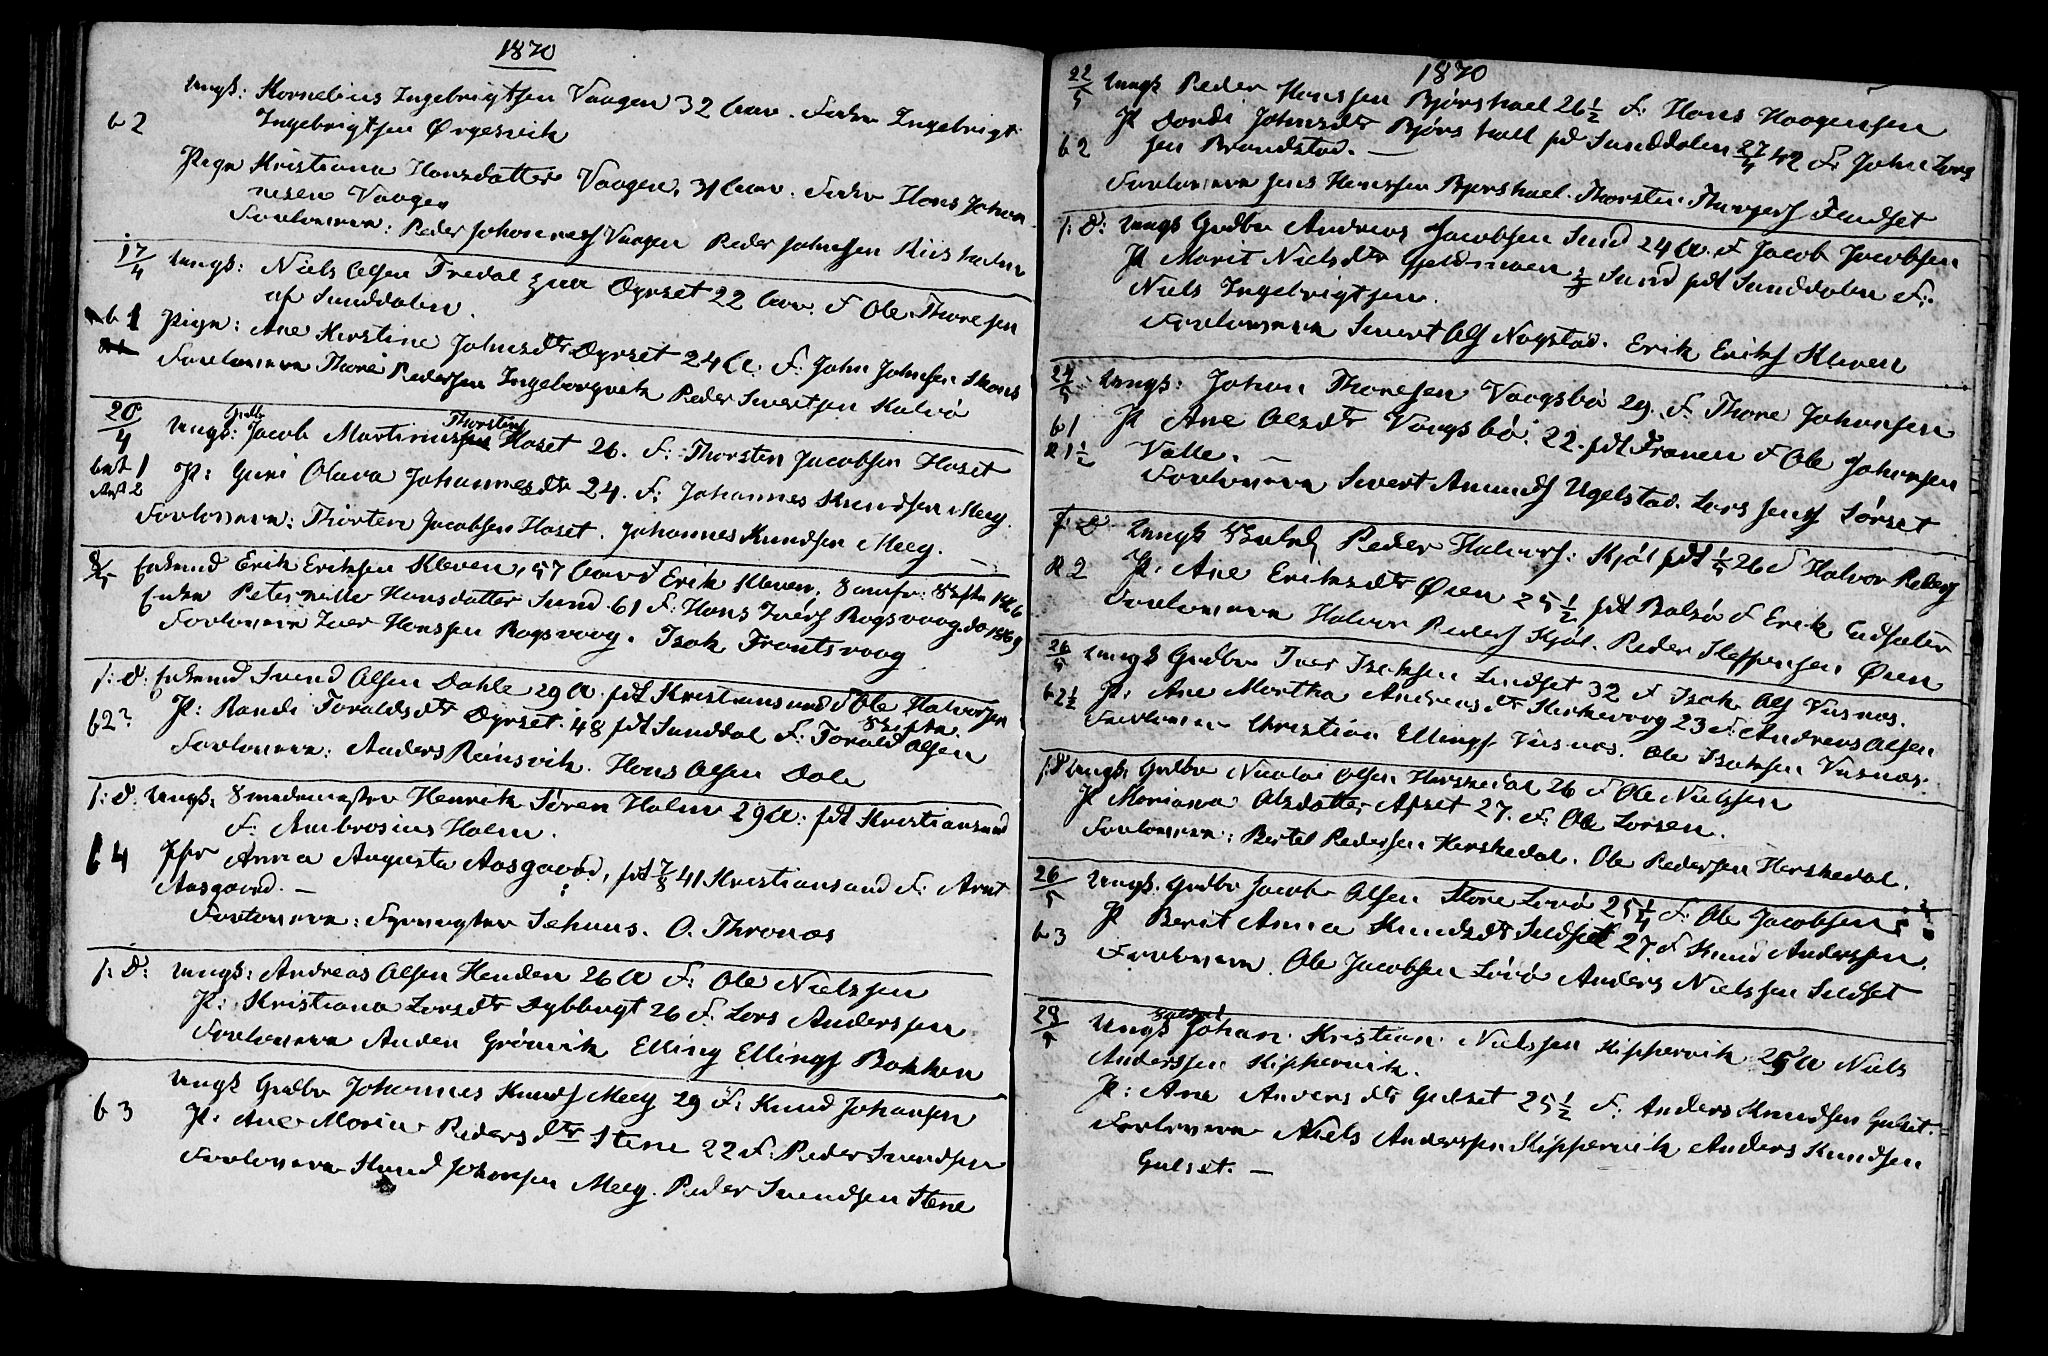 1870
Ungk: Kornelius Ingebrigtsen Vaagen 32 Aar. Fader Ingebrigt
b 2 Ingebrigtsen Ørgesvik
Pige Kristiana Hansdatter Vaagen, 31 Aar. Fader Hans Johan
nesen Vaagen
Forlovere: Peder Johanness Vaagen Peder Johnsen Riisholm
17/4 Ungk: Niels Olsen Tredal Øyrset 22 Aar. F Ole Thoresen
af Sunddalen.
b 1 Pige: Ane Kirstine Johnsdtr Øyrset 24 A. F: John Johnsen
Forlovere Thore Pedersen Ingeborgvik Peder Sivertsen Kalvø
20/4 Ungk: Gdbr Jacob Martinus Thorstens Hoset 26. F: Thorsten Jacobsen Hoset
1 P: Guri Olava Johannesdtr 24. F: Johannes Knudsen Meeg.
2
Forlovere: Thorsten Jacobsen Hoset. Johannes Knudsen Meeg.
8/5 Enkemd Erik Eriksen Kleven, 57 Aar F Erik Kleven, Skifte 1866
Enke Peternille Hansdatter Sund 61 F: Hans Ivers Rogsvaag do 1869
Forlovere Iver Hansen Rogsvaag. Isak Frantsvaag
s: D: Enkemd Svend Olsen Dahle 29 A. fdt Kristiansund F Ole Halvorsen
b 2? P: Randi Toraldsdtr Øyrset 48 fdt Sunddal F: Torald Olsen
Skifte
Forlovere: Anders Reinsvik. Hans Olsen Dale
s: D: Ungk. Smedemester Henrik Søren Holm 29 A: fdt Kristiansund
F: Ambrosius Holm.
b 4 Anna Augusta Aasgaard, fdt 7/8 41 Kristiansund F: Arnt
Aasgaard. —
Forlovere: Fyrvogter Schuus. O. Thronæs
s: D: Ungk: Andreas Olsen Henden 26 A F: Ole Nielssen
P: Kristiana Larsdtr Dybbugt 26 F: Lars Anderssen
Forlovere Grønvik Elling Ellings Bakken
Ungk Gdbr Johannes Knuds Meeg 29 F: Knud Johansen
b 3 P: Ane Maria Pedersdtr Stene 22 F: Peder Svendsen
Forlovere Knud Johansen Meeg. Peder Svendsen Stene
1870
22/5 Ungk Peder Hansen Bjørshael 26½ F: Hans Haagensen
P Dordi Johnsdtr Bjørshall fd Sunddalen 27/4 42 F: John Lars
b 2 sen Brandstad. —
Forlovere Jens Hanssen Bjørshael. Thorsten Flemset
s: D: Ungk Gdbr Andreas Jacobsen Sund 24 A. F Jacob Jacobsen
P Marit Nielsdtr Gjeldmoen Sund fdt Sunddalen F:
Niels Ingebrigtsen.
Forlovere Sivert Ols Nogstad. Erik Eriks Kleven
24/5 Ungk: Johan Thoresen Vaagsbø 29. F: Thore Johansen
b 1 P Ane Olsdtr Vaagsbø 22. fdt Franen F Ole Johansen
R 1½ Valle. —
Forlovere Sivert Amunds Ugelstad. Lars Jens Sørset
s: D Ungk Peder Halvors: Kjøl fdt 26 F Halvor
R 2 P: Ane Eriksdtr Øien 25½ fdt Bolsø F Erik Eidsæter
Forlovere Halvor Peders Kjøl. Peder Steffensen Øien
26/5 Ungk Gdbr Iver Isaksen Lindset 32 F Isak Ols Visnæs.
b 2½ P: Ane Martha Andreasdtr Kirkevaag 23 F: Andreas Olsen
Forlovere Christian Ellings Visnæs. Ole Isaksen Visnæs.
s: D Ungk. Gdbr Nicolai Olsen Herskedal 26 F Ole Nielssen
P Mariana Olsdatter Apset 27. F: Ole Larsen.
Forlovere: Bertel Pedersen Herskedal. Ole Pedersen Herskedal.
26/5 Ungk. Gdbr Jacob Olsen Store Lovø 25¼ F: Ole Jacobsen
b 3 P Berit Anna Knudsdtr Sildset 27. F Knud Anderssen.
Forlovere. Ole Jacobsen Lovø Anders Nielssen Sildset
29/5 Ungk Johan Kristian Nielssen Kippervik 25 A Niels
Anderssen Kippervik.
P: Ane Andersdtr Gulset 25½ F: Anders Knudsen Gulset.
Forlovere Niels Anderssen Kippervik Anders Knudsen
Gulset. —